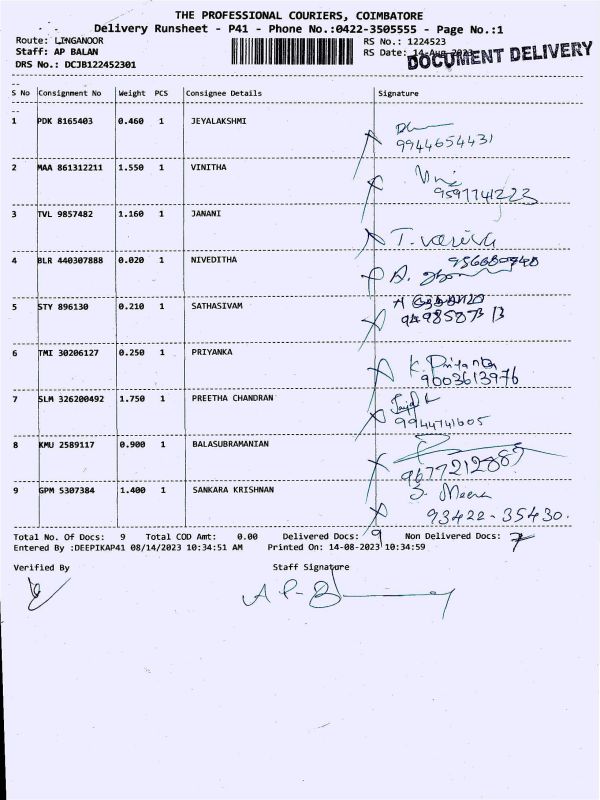 THE PROFESSIONAL COURIERS, COIMBATORE
Delivery Runsheet - P41 - Phone No.:0422-3505555 - Page No.:1
Route: LINGANOOR
Staff: AP BALAN
DRS No.: DCJB122452301
RS No.: 1224523
RS Date: 14-Aug-2023
DOCUMENT DELIVERY
S No Consignment No Weight PCS Consignee Details Signature
1 PDK 8165403 0.460 1 JEYALAKSHMI
9944654431
2 MAA 861312211 1.550 1 VINITHA
9597741223
3 TVL 9857482 1.160 1 JANANI
4 BLR 440307888 0.020 1 NIVEDITHA
5 STY 896130 0.210 1 SATHASIVAM
6 TMI 30206127 0.250 1 PRIYANKA
K. Priyanka
9003613976
7 SLM 326200492 1.750 1 PREETHA CHANDRAN
9944741605
8 KMU 2589117 0.900 1 BALASUBRAMANIAN
9677212887
9 GPM 5307384 1.400 1 SANKARA KRISHNAN
S. Meena
93422-35430.
Total No. Of Docs: 9 Total COD Amt: 0.00 Delivered Docs: 9 Non Delivered Docs:
Entered By :DEEPIKAP41 08/14/2023 10:34:51 AM Printed On: 14-08-2023 10:34:59
Verified By Staff Signature